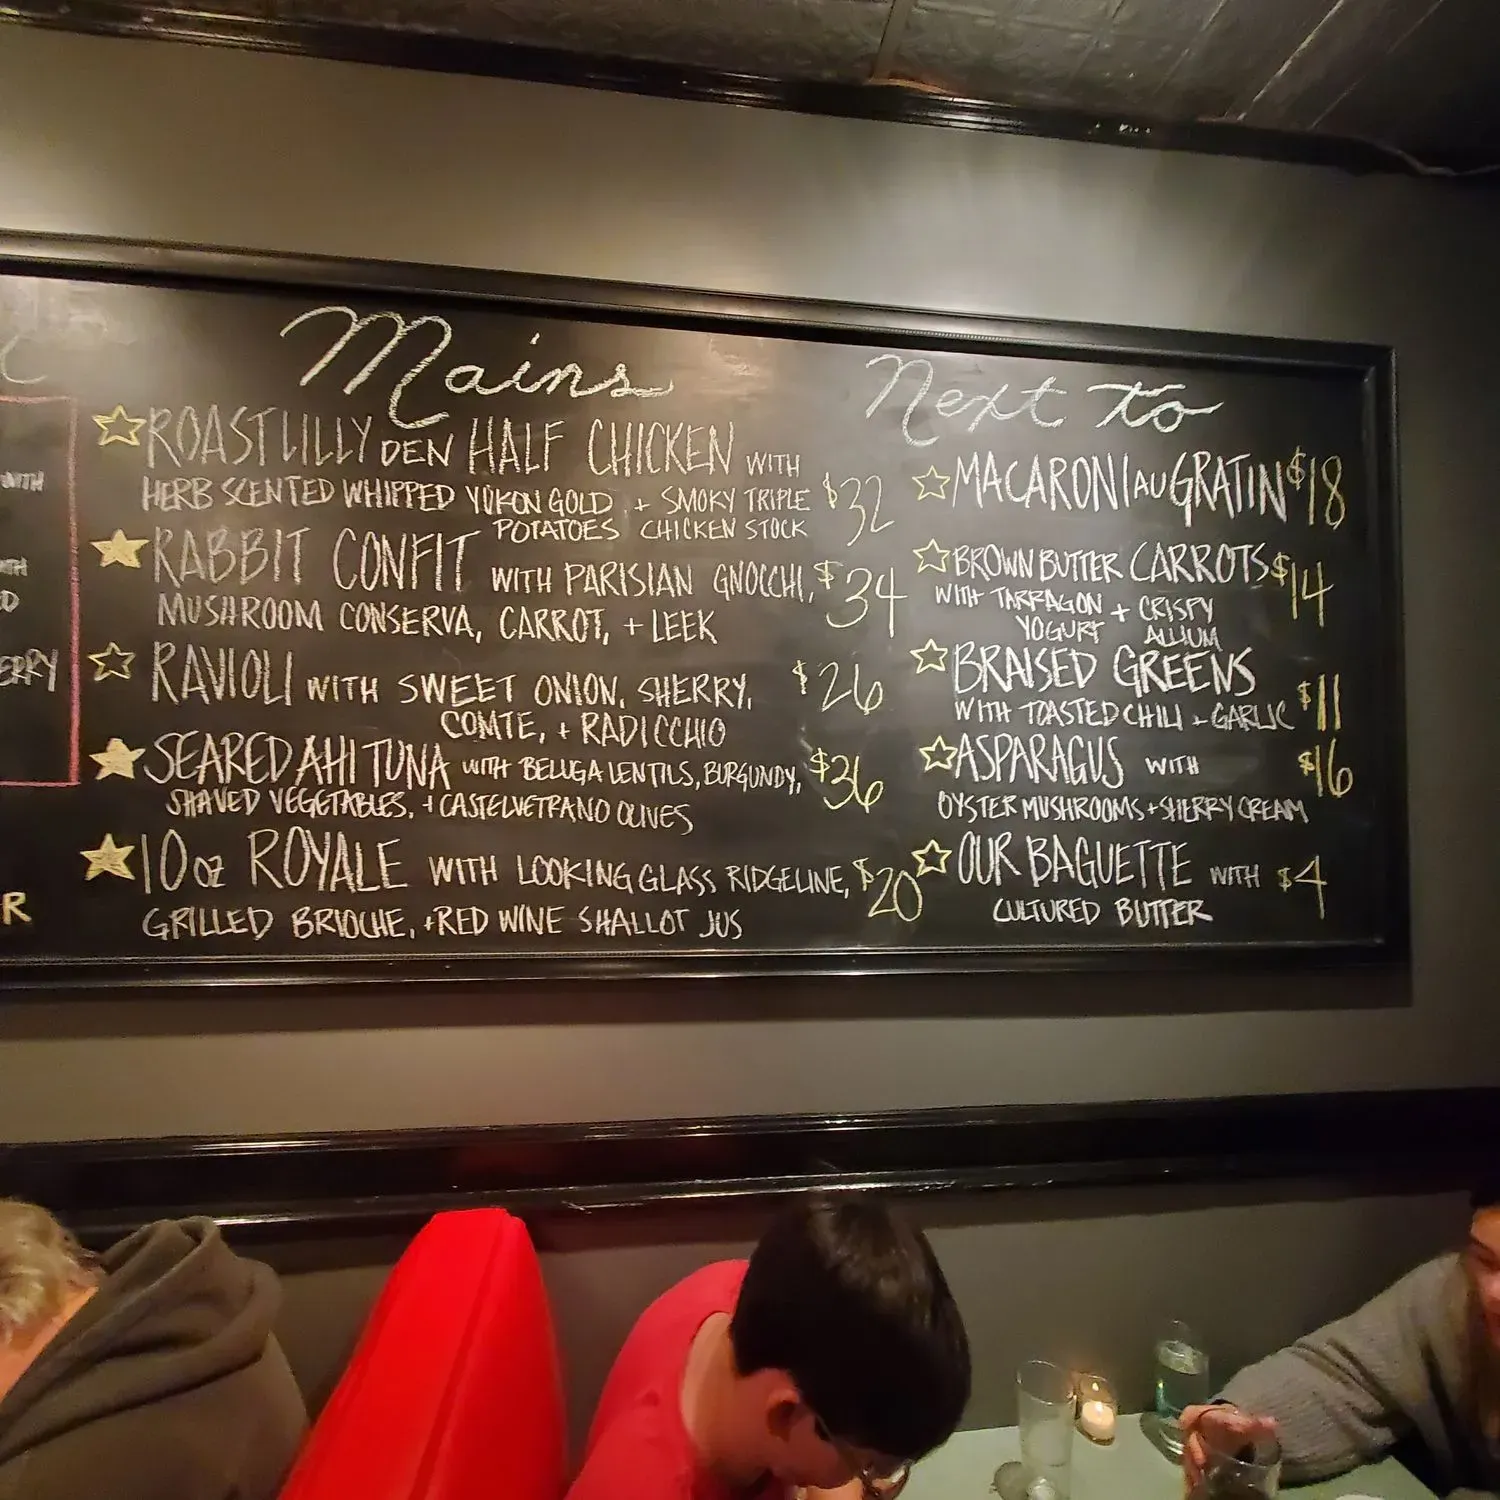 WITH
ERRY
R
Mains
ROAST LILLY DEN HALF CHICKEN WITH
HERB SCENTED WHIPPED YUKON GOLD + SMOKY TRIPLE $32
POTATOES CHICKEN STOCK
RABBIT CONFIT WITH PARISIAN GNOCCHI, $34
MUSHROOM CONSERVA, CARROT, + LEEK
RAVIOLI WITH SWEET ONION, SHERRY, $26
COMTE, + RADICCHIO
SEARED AHI TUNA WITH BELUGA LENTILS, BURGUNDY, $36
SHAVED VEGETABLES, + CASTELVETRANO OLIVES
10 oz ROYALE WITH LOOKING GLASS RIDGELINE, $20
GRILLED BRIOCHE, + RED WINE SHALLOT JUS
Next to
MACARONI AU GRATIN $18
BROWN BUTTER CARROTS $14
WITH TARRAGON + CRISPY
YOGURT ALLIUM
BRAISED GREENS
WITH TOASTED CHILI + GARLIC $11
ASPARAGUS WITH $16
OYSTER MUSHROOMS + SHERRY CREAM
OUR BAGUETTE WITH $4
CULTURED BUTTER